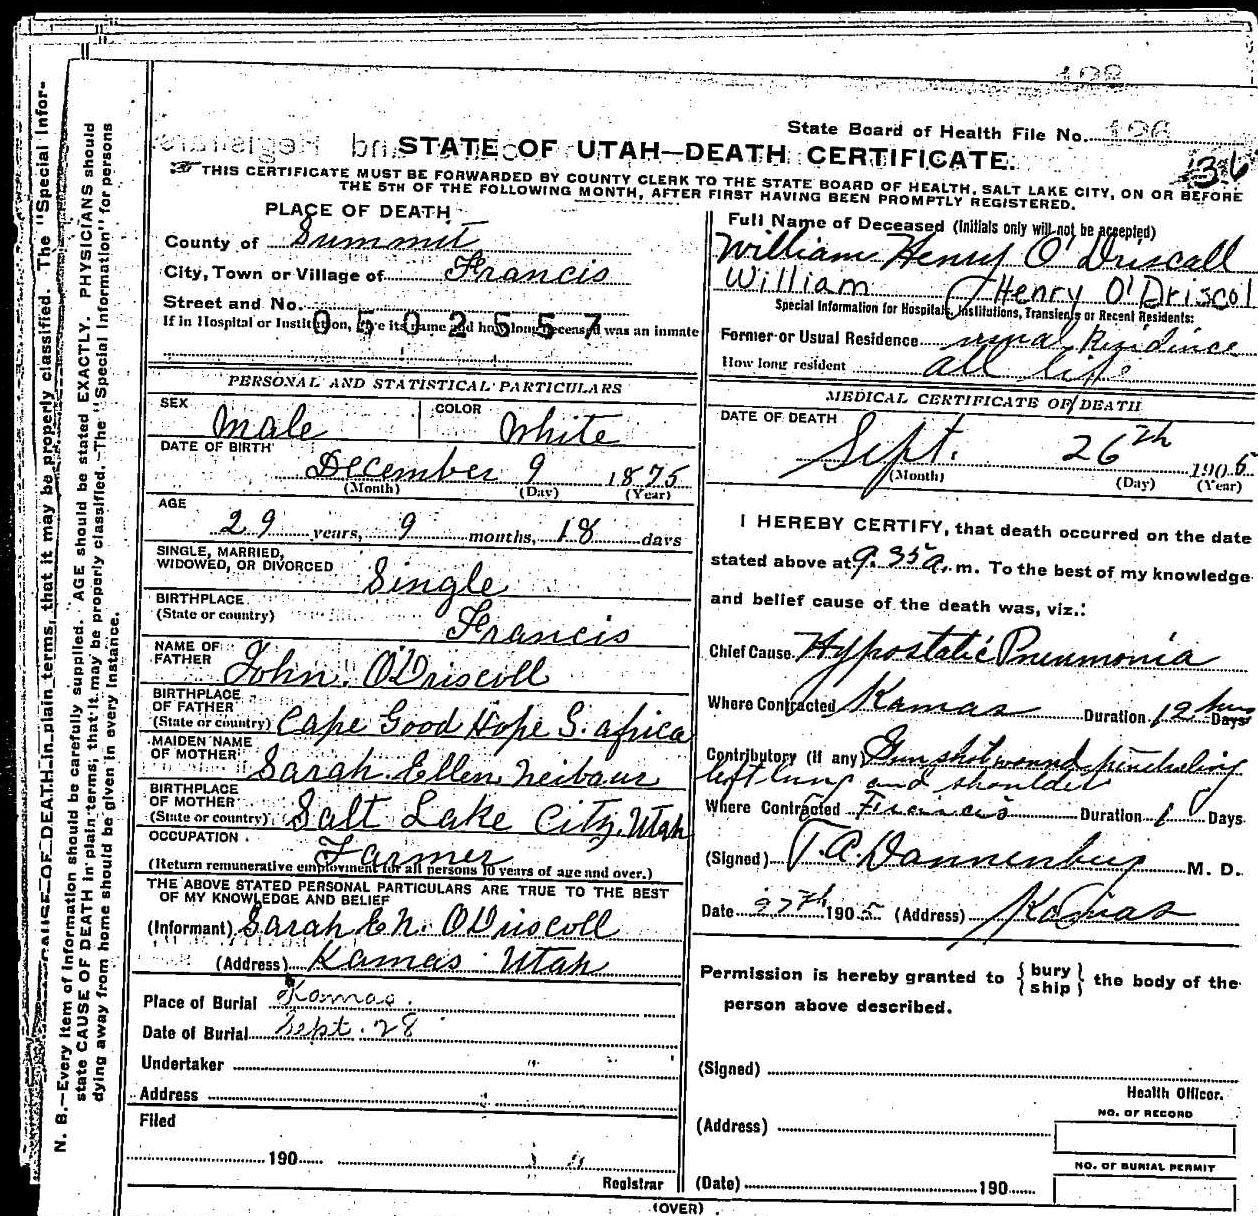 State Board of Health File No. 126
STATE OF UTAH—DEATH CERTIFICATE.
36
THIS CERTIFICATE MUST BE FORWARDED BY COUNTY CLERK TO THE STATE BOARD OF HEALTH, SALT LAKE CITY, ON OR BEFORE
THE 5TH OF THE FOLLOWING MONTH, AFTER FIRST HAVING BEEN PROMPTLY REGISTERED.
PLACE OF DEATH
County of Summit
City, Town or Village of Francis
Street and No.
If in Hospital or Institution, give its name and how long deceased was an inmate
0502557
PERSONAL AND STATISTICAL PARTICULARS
SEX Male COLOR White
DATE OF BIRTH December 9 1875
(Month) (Day) (Year)
AGE
29 years, 9 months, 18 days
SINGLE, MARRIED,
WIDOWED, OR DIVORCED Single
BIRTHPLACE
(State or country) Francis
NAME OF
FATHER John O'Driscoll
BIRTHPLACE
OF FATHER
(State or country) Cape Good Hope S. africa
MAIDEN NAME
OF MOTHER Sarah Ellen Neibaur
BIRTHPLACE
OF MOTHER
(State or country) Salt Lake City, Utah
OCCUPATION Farmer
(Return remunerative employment for all persons 10 years of age and over.)
THE ABOVE STATED PERSONAL PARTICULARS ARE TRUE TO THE BEST
OF MY KNOWLEDGE AND BELIEF
(Informant) Sarah E N. O'Driscoll
(Address) Kamas Utah
Place of Burial Kamas.
Date of Burial Sept. 28
Undertaker
Address
Filed
190
Registrar
Full Name of Deceased (Initials only will not be accepted)
William Henry O'Driscall
William Henry O'Driscol
Special Information for Hospitals, Institutions, Transients or Recent Residents:
Former or Usual Residence usual Residince
How long resident all life
MEDICAL CERTIFICATE OF DEATH
DATE OF DEATH
Sept. 26th 1905
(Month) (Day) (Year)
I HEREBY CERTIFY, that death occurred on the date
stated above at 9.35 a. m. To the best of my knowledge
and belief cause of the death was, viz.:
Chief Cause Hypostatic Pneumonia
Where Contracted Kamas Duration 12 hrs Days
Contributory (if any) Gun shot wound penetrating
left lung and shoulder
Where Contracted Francis Duration 1 Days
(Signed) T.A. Dannenberg M. D.
Date 27th 1905 (Address) Kamas
Permission is hereby granted to {bury
ship} the body of the
person above described.
(Signed)
Health Officer.
(Address)
NO. OF RECORD
NO. OF BURIAL PERMIT
(Date) 190
(OVER)
N. B.—Every item of information should be carefully supplied. AGE should be stated EXACTLY. PHYSICIANS should
state CAUSE OF DEATH in plain terms, that it may be properly classified. The "Special Information" for persons
dying away from home should be given in every instance.
CAUSE OF DEATH in plain terms, that it may be properly classified. The "Special Infor-